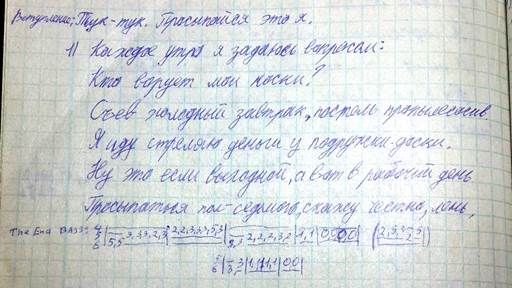 Вступление: Тук-тук. Просыпайся это я.
1) Каждое утро я задаюсь вопросом:
Кто ворует мои носки?
Съев холодный завтрак, постель пропылесосив
Я иду стрелять деньги у подружки-доски.
Ну это если выходной, а вот в рабочий день
Просыпаться пол-седьмого, скажу честно, лень,
The End BASS: